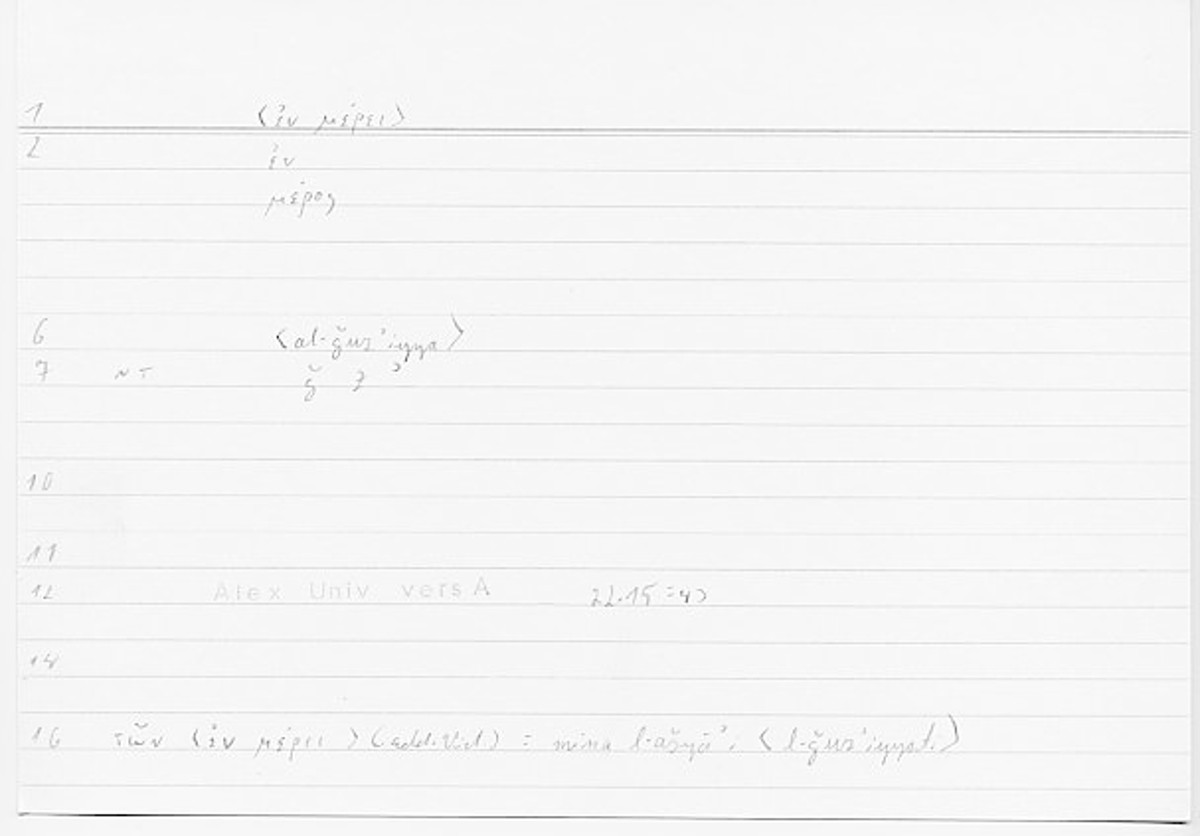 1 〈ἐν μέρει〉
2 ἐν
μέρος
6 〈al-ǧuzʾiyya〉
7 NT ǧ z ʾ
10
11
12 Alex Univ vers A 22.15 =
14
16 τῶν 〈ἐν μέρει〉 ( ) = mina l-ašyāʾi 〈l-ǧuzʾiyyati〉